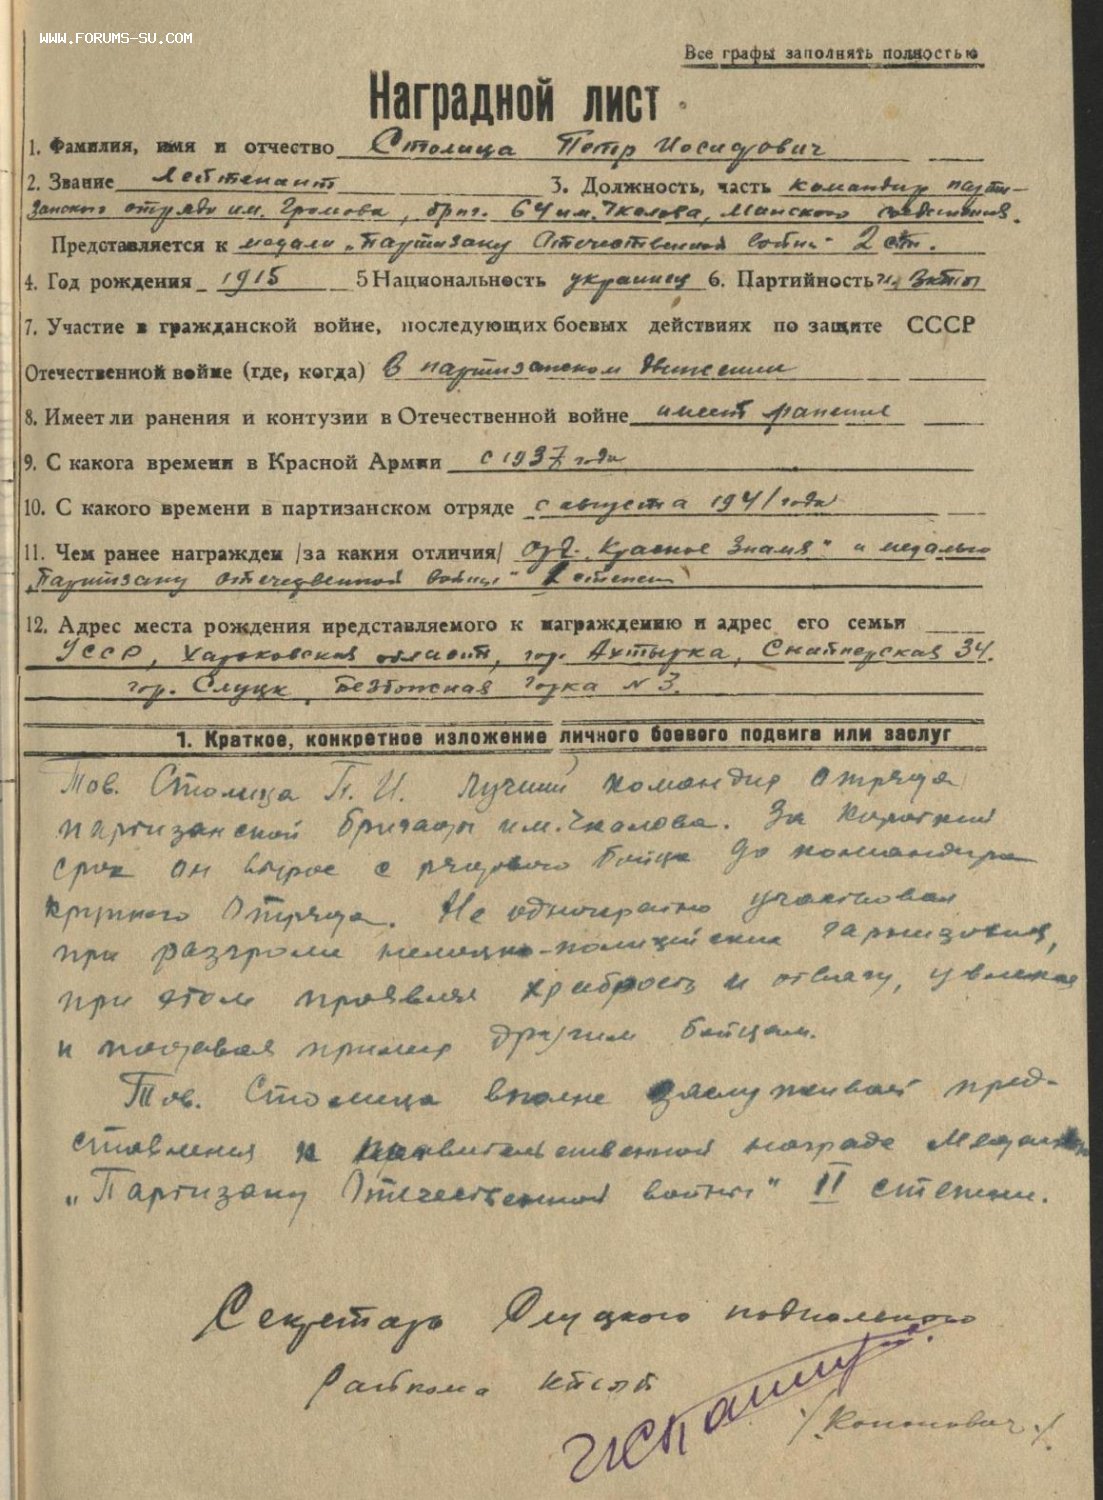 WWW.FORUMS-SU.COM
Все графы заполнять полностью
Наградной лист
1. Фамилия, имя и отчество Столица Петр Иосифович
2. Звание Лейтенант 3. Должность, часть командир парти-
занского отряда им. Громова, бриг. 64 им. Чкалова, Минского соединения.
Представляется к медали „Партизану Отечественной войны" 2 ст.
4. Год рождения 1915 5 Национальность украинец 6. Партийность чл. ВКП(б)
7. Участие в гражданской войне, последующих боевых действиях по защите СССР
Отечественной войне (где, когда) В партизанском движении
8. Имеет ли ранения и контузии в Отечественной войне имеет ранение
9. С какога времени в Красной Армии с 1937 года
10. С какого времени в партизанском отряде с августа 1941 года
11. Чем ранее награжден /за какия отличия/ орд. „Красное Знамя" и медалью
„Партизану отечественной войны" степени
12. Адрес места рождения представляемого к награждению и адрес его семьи
УССР, Харьковская область, гор. Ахтырка, Снайперская 34.
гор. Слуцк, Безбожная Горка N 3.
1. Краткое, конкретное изложение личного боевого подвига или заслуг
Тов. Столица П. И. лучший командир отряда
партизанской бригады им. Чкалова. За короткий
срок он вырос с рядового бойца до командира
крупного отряда. Не однократно участвовал
при разгроме немецко-полицейских гарнизонов,
при этом проявляя храбрость и отвагу, увлекая
и подавая пример другим бойцам.
Тов. Столица вполне заслуживает пред-
ставления к правительственной награде Медали
„Партизану Отечественной войны" II степени.
Секретарь Слуцкого подпольного
Райкома КП(б)Б
/Кононович/.